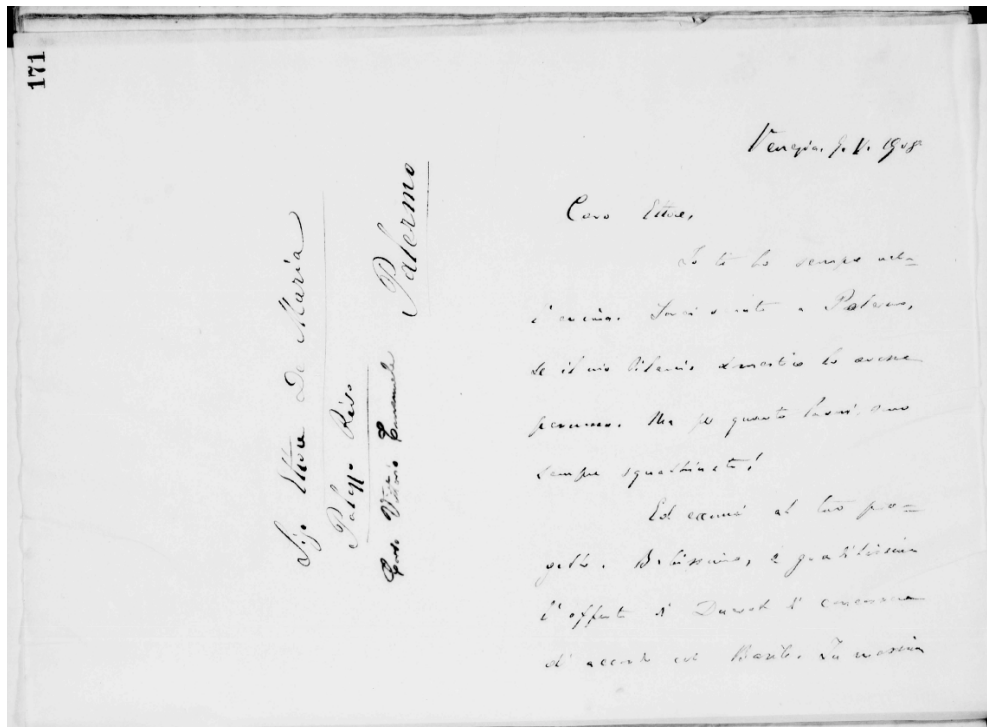 171
Sig. Ettore De Maria
Palazzo Riso
Corso Vittorio Emanuele
Palermo
Venezia. 9. V. 1908
Caro Ettore,
Io ti ho sempre nella
se il mio bilancio domestico lo avesse
permesso. Ma per quanto lavori, sono
sempre squattrinato!
Ed eccomi al tuo pro=
getto. Bellissima, e graditissima
l'offerta di concorrere
d'accordo col Basile. In massima